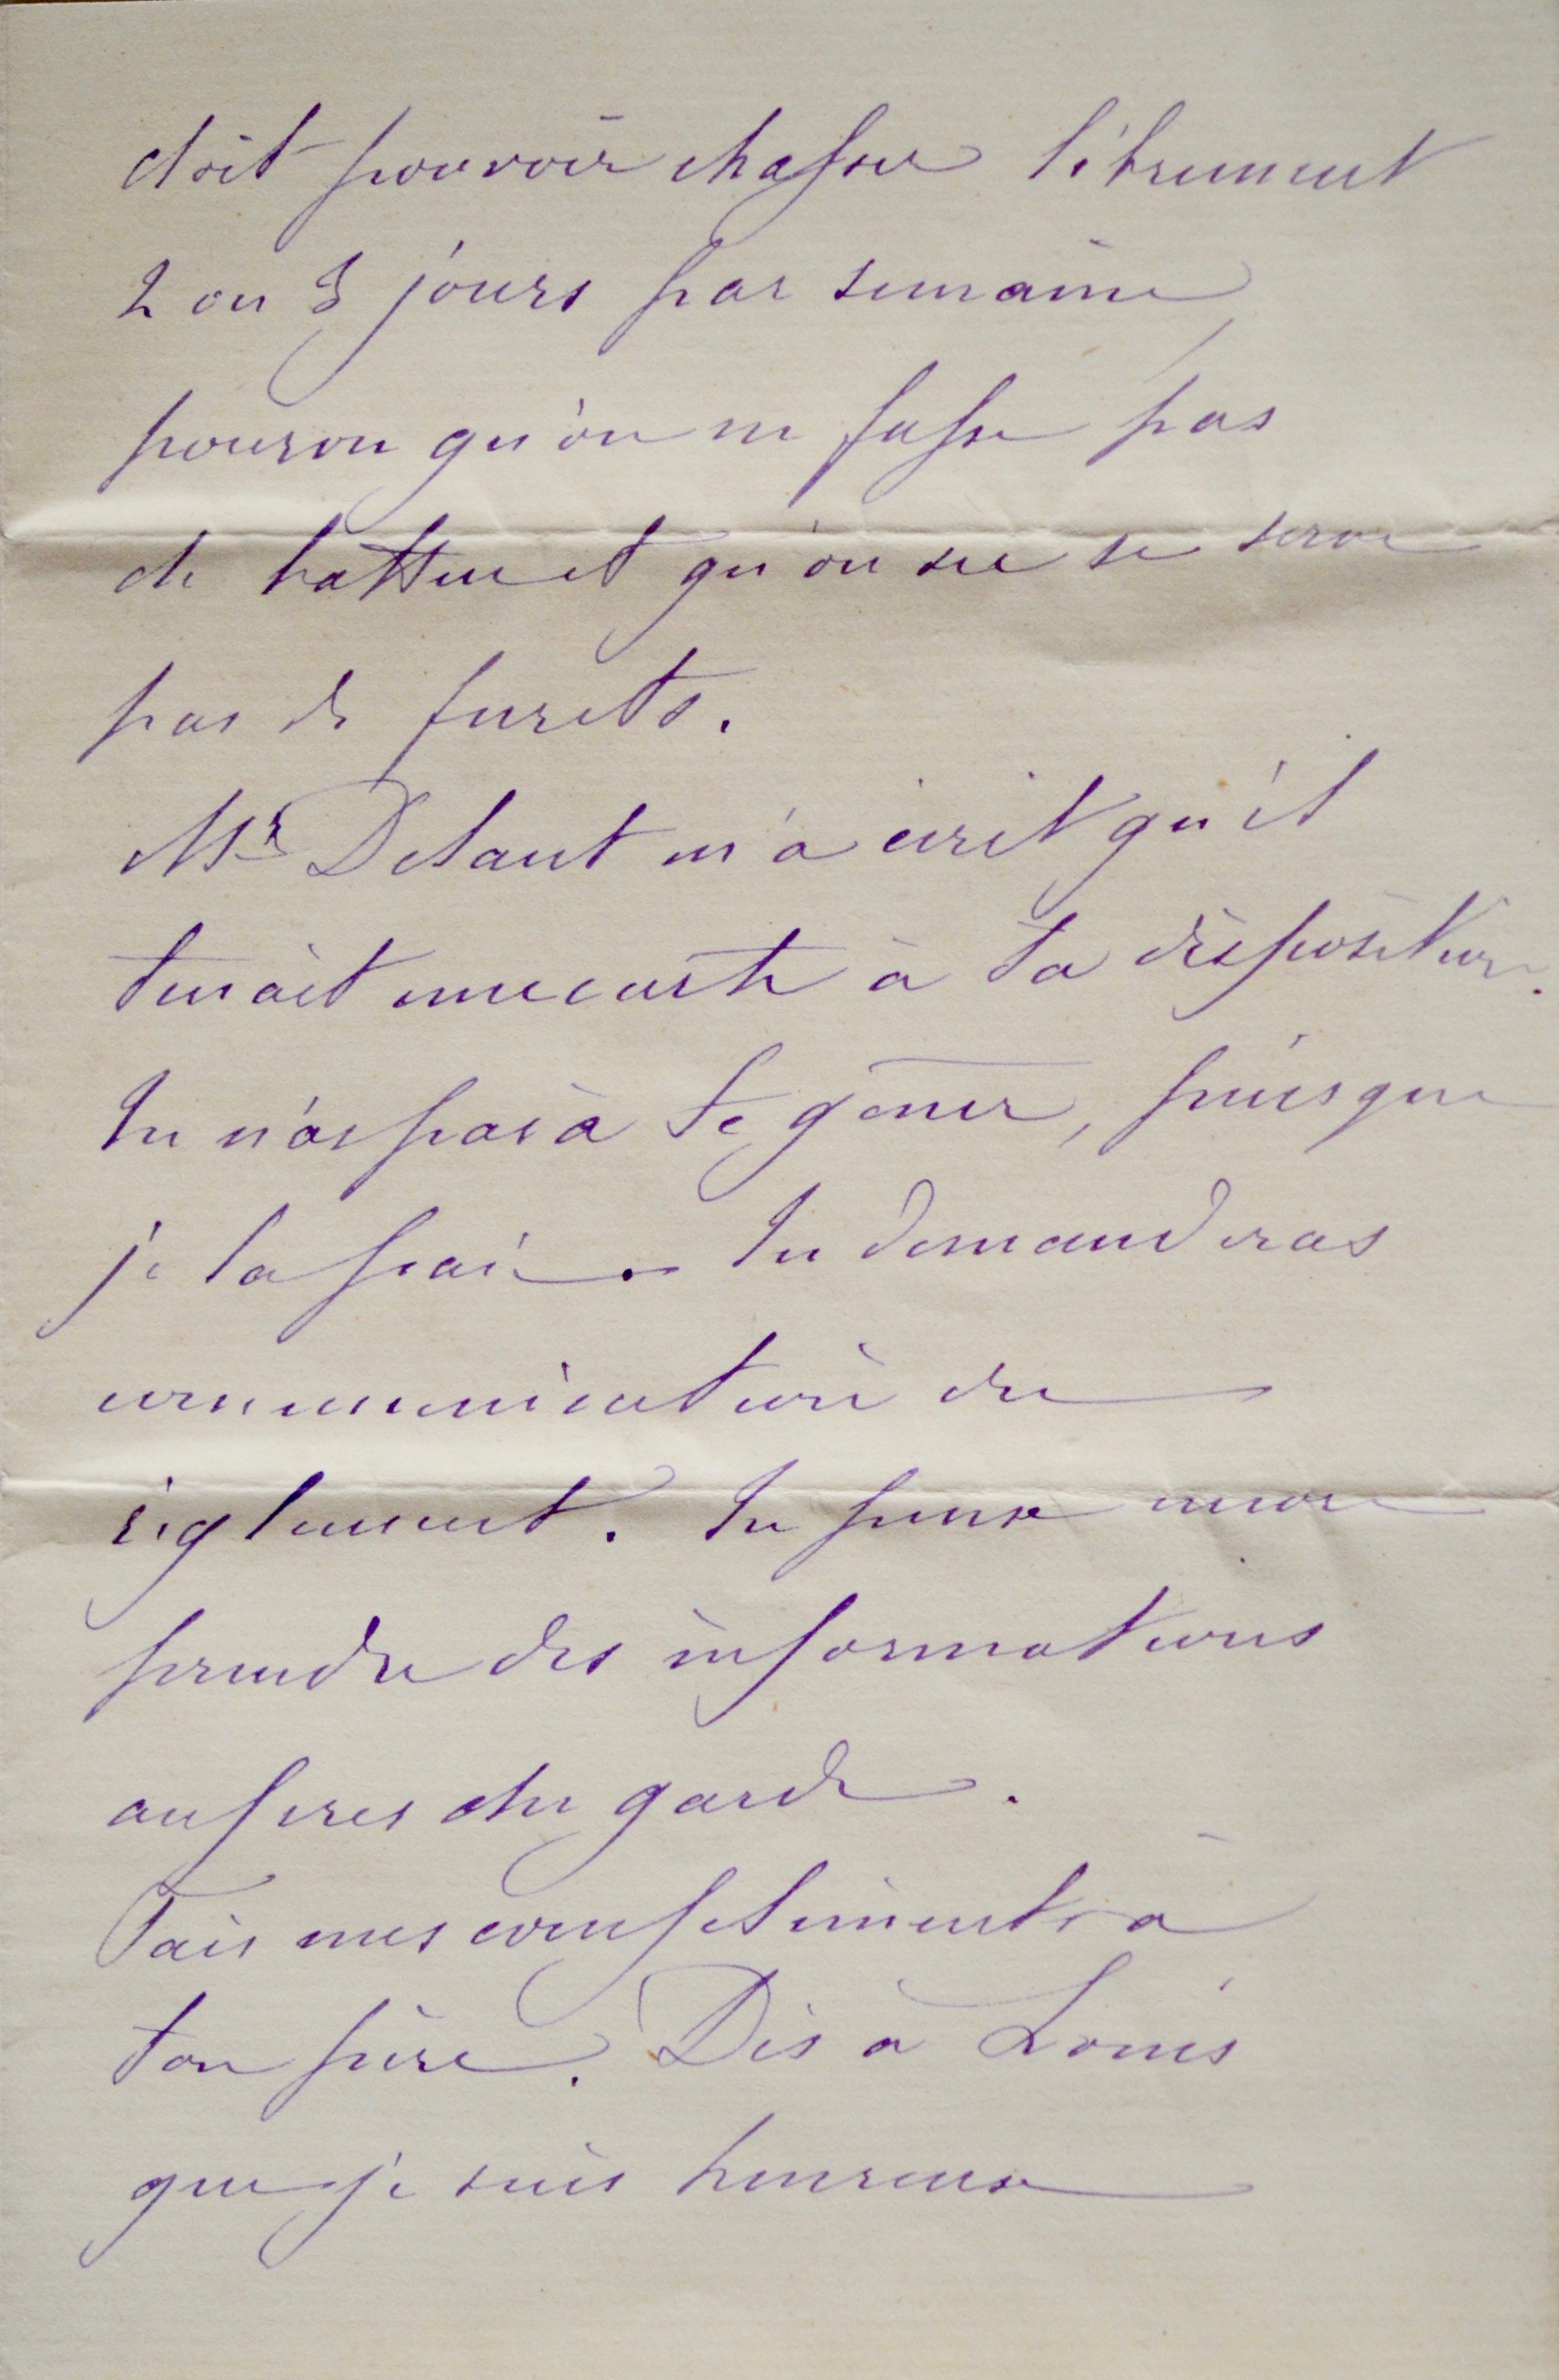 doit pouvoir chasser librement
2 ou 3 jours par semaine,
pourvu qu'on ne fasse pas
de battue et qu'on ne se serve
pas de furets.
Mr Delaut m'a écrit qu'il
tenait une carte à ta disposition.
Tu n'as pas à te gêner, puisque
je la paie. Tu demanderas
communication du
règlement. Tu peux encore
prendre des informations
auprès du garde.
Fais mes compliments à
ton père. Dis à Louis
que je suis heureuse